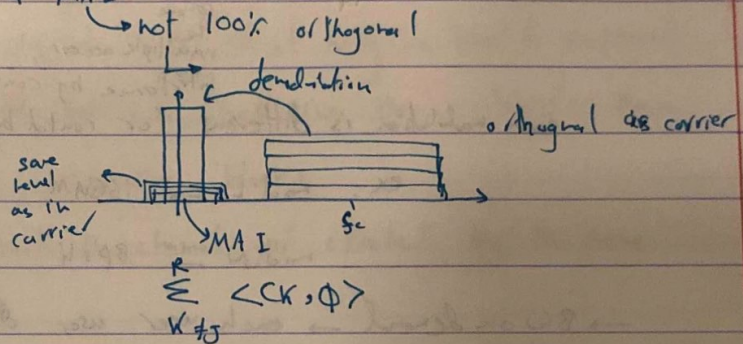 not 100% orthogonal
demodulation
orthogonal as carrier
same
level
as in
carrier
MAI
fc
R
Σ <CK, Φ>
K≠J